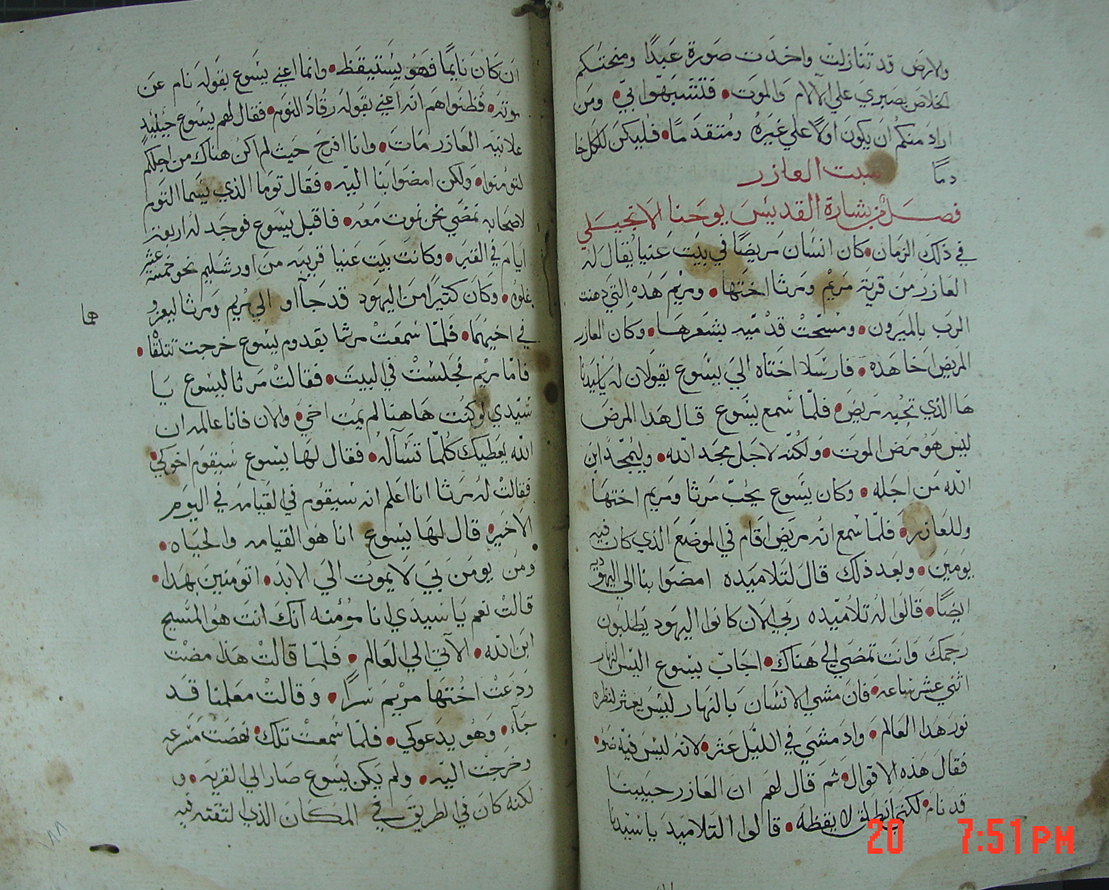 ولارض قد تنازلت واخدت صورة عبدًا ومنحتكم
الخلاص بصبري على الآلام والموت • فلتتشبهوا بي • ومن
اراد منكم ان يكون اولًا على غيره ومتقدمًا • فليكن للكل خا
دمًا
سبت العازر
فصل من بشارة القديس يوحنا الانجيلي
في ذلك الزمان • كان انسان مريضًا في بيت عنيا يقال له
العازر من قرية مريم ومرثا اختها • ومريم هذه التي دهنت
الرب بالميرون • ومسحت قدميه بشعرها • وكان العازر
المريض اخا هذه • فارسلا اختاه الى يسوع يقولان له يا سيدنا
ها الذي تحبه مريض • فلما سمع يسوع قال هدا المرض
ليس هو مرض الموت • ولكنه لاجل مجد الله • وليمجد ابن
الله من اجله • وكان يسوع يحب مرثا ومريم اختها
وللعازر • فلما سمع انه مريض اقام في الموضع الذي كان فيه
يومين • وبعد ذلك قال لتلاميده امضوا بنا الى اليهودية
ايضًا • قالوا له تلاميده ربي الان كانوا اليهود يطلبون
رجمك وانت تمضي الى هناك • اجاب يسوع اليس النهار
اثني عشر ساعه • فان مشى الانسان بالنهار ليس يعثر لنظره
نور هدا العالم • واد مشى في الليل عثر • لانه ليس فيه ضو •
فقال هذه الاقوال • ثم قال لهم ان العازر حبيبنا
قد نام • لكني انطلق لايقظه • قالوا التلاميد يا سيدنا
ان كان نايمًا فهو يستيقظ • وانما اعني يسوع بقوله نام عن
موته • فظنوا هم انه اعني بقوله رقاد النوم • فقال لهم يسوع حينيدٍ
علانيه العازر مات • وانا افرح حيث لم اكن هناك من اجلكم
لتومنوا • ولكن امضوا بنا اليه • فقال توما الذي يسما التوم
لاصحابه نمضي نحن نموت معه • فاقبل يسوع فوجد له اربعة
ايام في القبر • وكانت بيت عنيا قريبه من اورشليم نحو خمسة عشر
غلوه • وكان كتيرًا من اليهود قد جآاو الى مريم ومرثا ليعزو
هما
في اخيهما • فلما سمعت مرثا بقدوم يسوع خرجت تتلقا •
فاما مريم فجلست في البيت • فقالت مرثا ليسوع يا
سيدي لو كنت هاهنا لم يمت اخي • ولان فانا عالمه ان
الله يعطيك كلما تسآله • فقال لها يسوع سيقوم اخوكي •
فقالت له مرثا انا اعلم انه سيقوم في القيامه في اليوم
الاخير • قال لها يسوع انا هو القيامه والحياه •
ومن يومن بي لا يموت الى الابد • اتومنين بهدا •
قالت نعم يا سيدي انا مؤمنه آنك انت هو المسيح
ابن الله • الآتي الى العالم • فلما قالت هدا مضت
ودعت اختها مريم سرًا • وقالت معلمنا قد
جآء • وهو يدعوكي • فلما سمعت تلك نهضت مسرعه
وخرجت اليه • ولم يكن يسوع صار الى القريه • و
لكنه كان في الطريق في المكان الذي التقته فيه
٨٨
20 7:51 PM